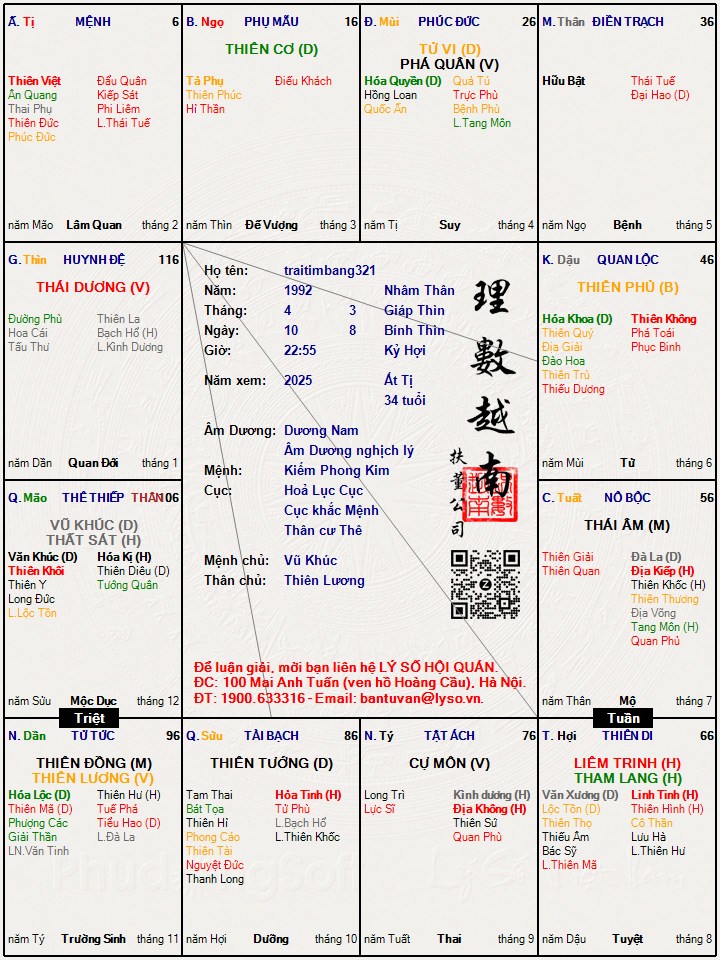 Ấ. Tị MỆNH 6
Thiên Việt Đẩu Quân
Ân Quang Kiếp Sát
Thai Phụ Phi Liêm
Thiên Đức L.Thái Tuế
Phúc Đức
năm Mão Lâm Quan tháng 2
B. Ngọ PHỤ MẪU 16
THIÊN CƠ (D)
Tả Phụ Điếu Khách
Thiên Phúc
Hỉ Thần
năm Thìn Đế Vượng tháng 3
Đ. Mùi PHÚC ĐỨC 26
TỬ VI (D)
PHÁ QUÂN (V)
Hóa Quyền (D) Quả Tú
Hồng Loan Trực Phù
Quốc Ấn Bệnh Phù
L.Tang Môn
năm Tị Suy tháng 4
M. Thân ĐIỀN TRẠCH 36
Hữu Bật Thái Tuế
Đại Hao (D)
năm Ngọ Bệnh tháng 5
G. Thìn HUYNH ĐỆ 116
THÁI DƯƠNG (V)
Đường Phù Thiên La
Hoa Cái Bạch Hổ (H)
Tấu Thư L.Kình Dương
năm Dần Quan Đới tháng 1
Họ tên: traitimbang321
Năm: 1992 Nhâm Thân
Tháng: 4 3 Giáp Thìn
Ngày: 10 8 Bính Thìn
Giờ: 22:55 Kỷ Hợi
Năm xem: 2025 Ất Tị
34 tuổi
Âm Dương: Dương Nam
Âm Dương nghịch lý
Mệnh: Kiếm Phong Kim
Cục: Hoả Lục Cục
Cục khắc Mệnh
Thân cư Thê
Mệnh chủ: Vũ Khúc
Thân chủ: Thiên Lương
理數越南
扶董公司
Để luận giải, mời bạn liên hệ LÝ SỐ HỘI QUÁN.
ĐC: 100 Mai Anh Tuấn (ven hồ Hoàng Cầu), Hà Nội.
ĐT: 1900.633316 - Email: bantuvan@lyso.vn.
K. Dậu QUAN LỘC 46
THIÊN PHỦ (B)
Hóa Khoa (D) Thiên Không
Thiên Quý Phá Toái
Địa Giải Phục Binh
Đào Hoa
Thiên Trù
Thiếu Dương
năm Mùi Tử tháng 6
Q. Mão THÊ THIẾP THÂN 106
VŨ KHÚC (D)
THẤT SÁT (H)
Văn Khúc (D) Hóa Kị (H)
Thiên Khôi Thiên Diêu (D)
Thiên Y Tướng Quân
Long Đức
L.Lộc Tồn
năm Sửu Mộc Dục tháng 12
C. Tuất NÔ BỘC 56
THÁI ÂM (M)
Thiên Giải Đà La (D)
Thiên Quan Địa Kiếp (H)
Thiên Khốc (H)
Thiên Thương
Địa Võng
Tang Môn (H)
Quan Phủ
năm Thân Mộ tháng 7
Triệt
Tuần
N. Dần TỬ TỨC 96
THIÊN ĐỒNG (M)
THIÊN LƯƠNG (V)
Hóa Lộc (D) Thiên Hư (H)
Thiên Mã (D) Tuế Phá
Phượng Các Tiểu Hao (D)
Giải Thần L.Đà La
LN.Văn Tinh
năm Tý Trường Sinh tháng 11
Q. Sửu TÀI BẠCH 86
THIÊN TƯỚNG (D)
Tam Thai Hỏa Tinh (H)
Bát Tọa Tử Phù
Thiên Hỉ L.Bạch Hổ
Phong Cáo L.Thiên Khốc
Thiên Tài
Nguyệt Đức
Thanh Long
năm Hợi Dưỡng tháng 10
N. Tý TẬT ÁCH 76
CỰ MÔN (V)
Long Trì Kình dương (H)
Lực Sĩ Địa Không (H)
Thiên Sứ
Quan Phù
năm Tuất Thai tháng 9
T. Hợi THIÊN DI 66
LIÊM TRINH (H)
THAM LANG (H)
Văn Xương (D) Linh Tinh (H)
Lộc Tồn (D) Thiên Hình (H)
Thiên Thọ Cô Thần
Thiếu Âm Lưu Hà
Bác Sỹ L.Thiên Hư
L.Thiên Mã
năm Dậu Tuyệt tháng 8